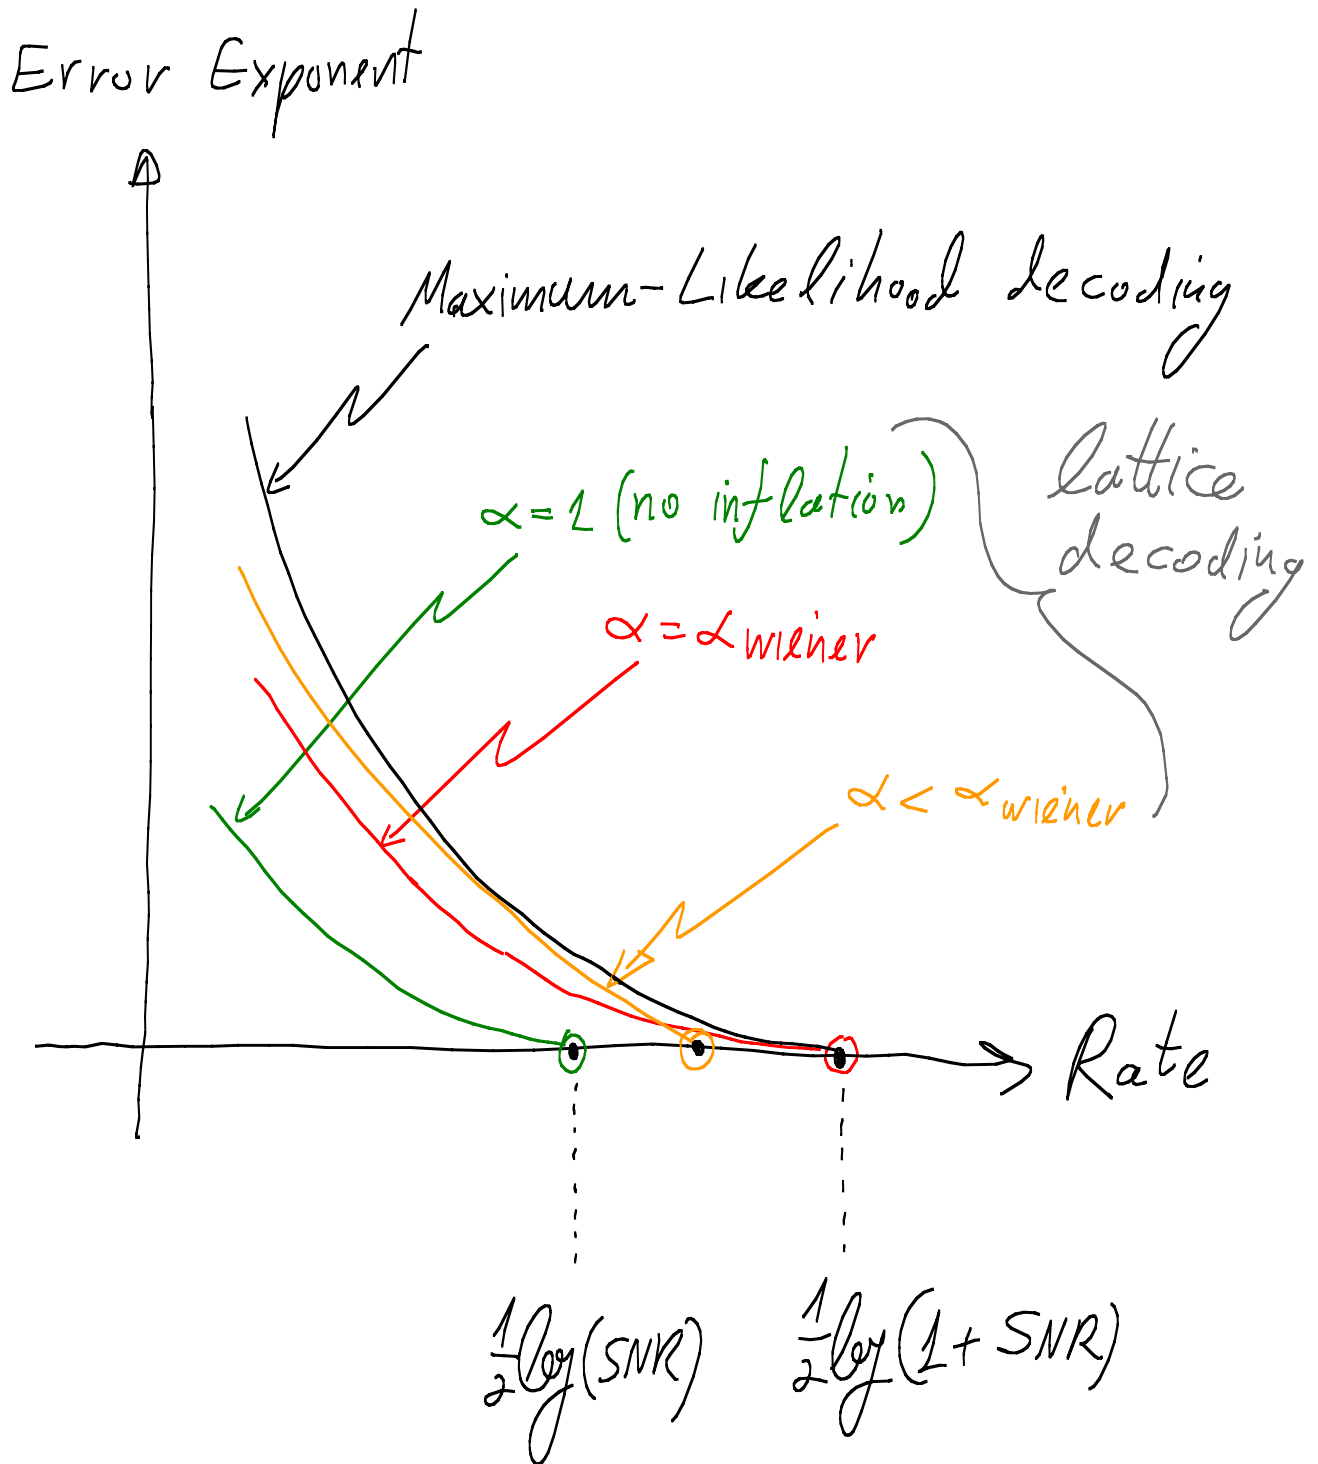 Error Exponent
Maximum-Likelihood decoding
lattice
decoding
α=1 (no inflation)
α=αwiener
α<αwiener
Rate
1/2 log(SNR)
1/2 log(1+SNR)